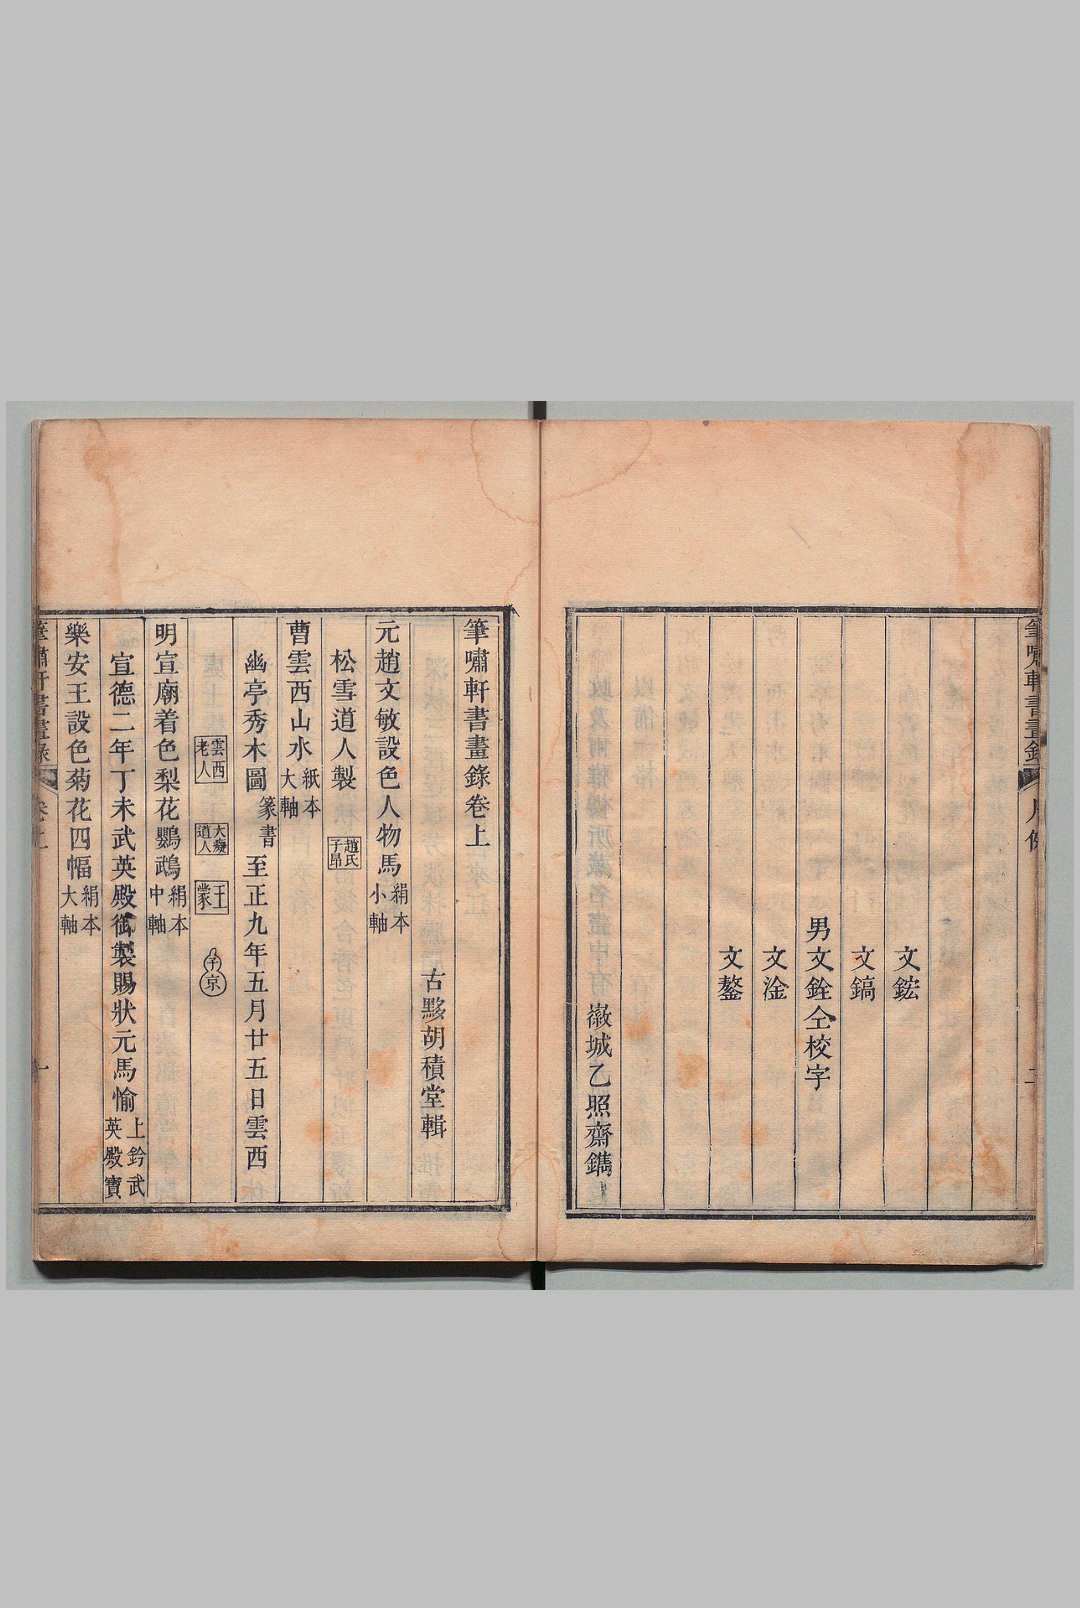 筆嘯軒書畫錄
凡例
二
文鋐
文鎬
男文銓仝校字
文淦
文鏊
徽城乙照齋鐫
筆嘯軒書畫錄卷上
古黟胡積堂輯
元趙文敏設色人物馬絹本小軸
松雪道人製趙氏子昂
曹雲西山水紙本大軸
幽亭秀木圖篆書至正九年五月廿五日雲西
雲西老人 大癡道人 王蒙 子京
明宣廟着色梨花鸚鵡絹本中軸
宣德二年丁未武英殿御製賜狀元馬愉上鈐武英殿寶
樂安王設色菊花四幅絹本大軸
筆嘯軒書畫錄
卷上
一